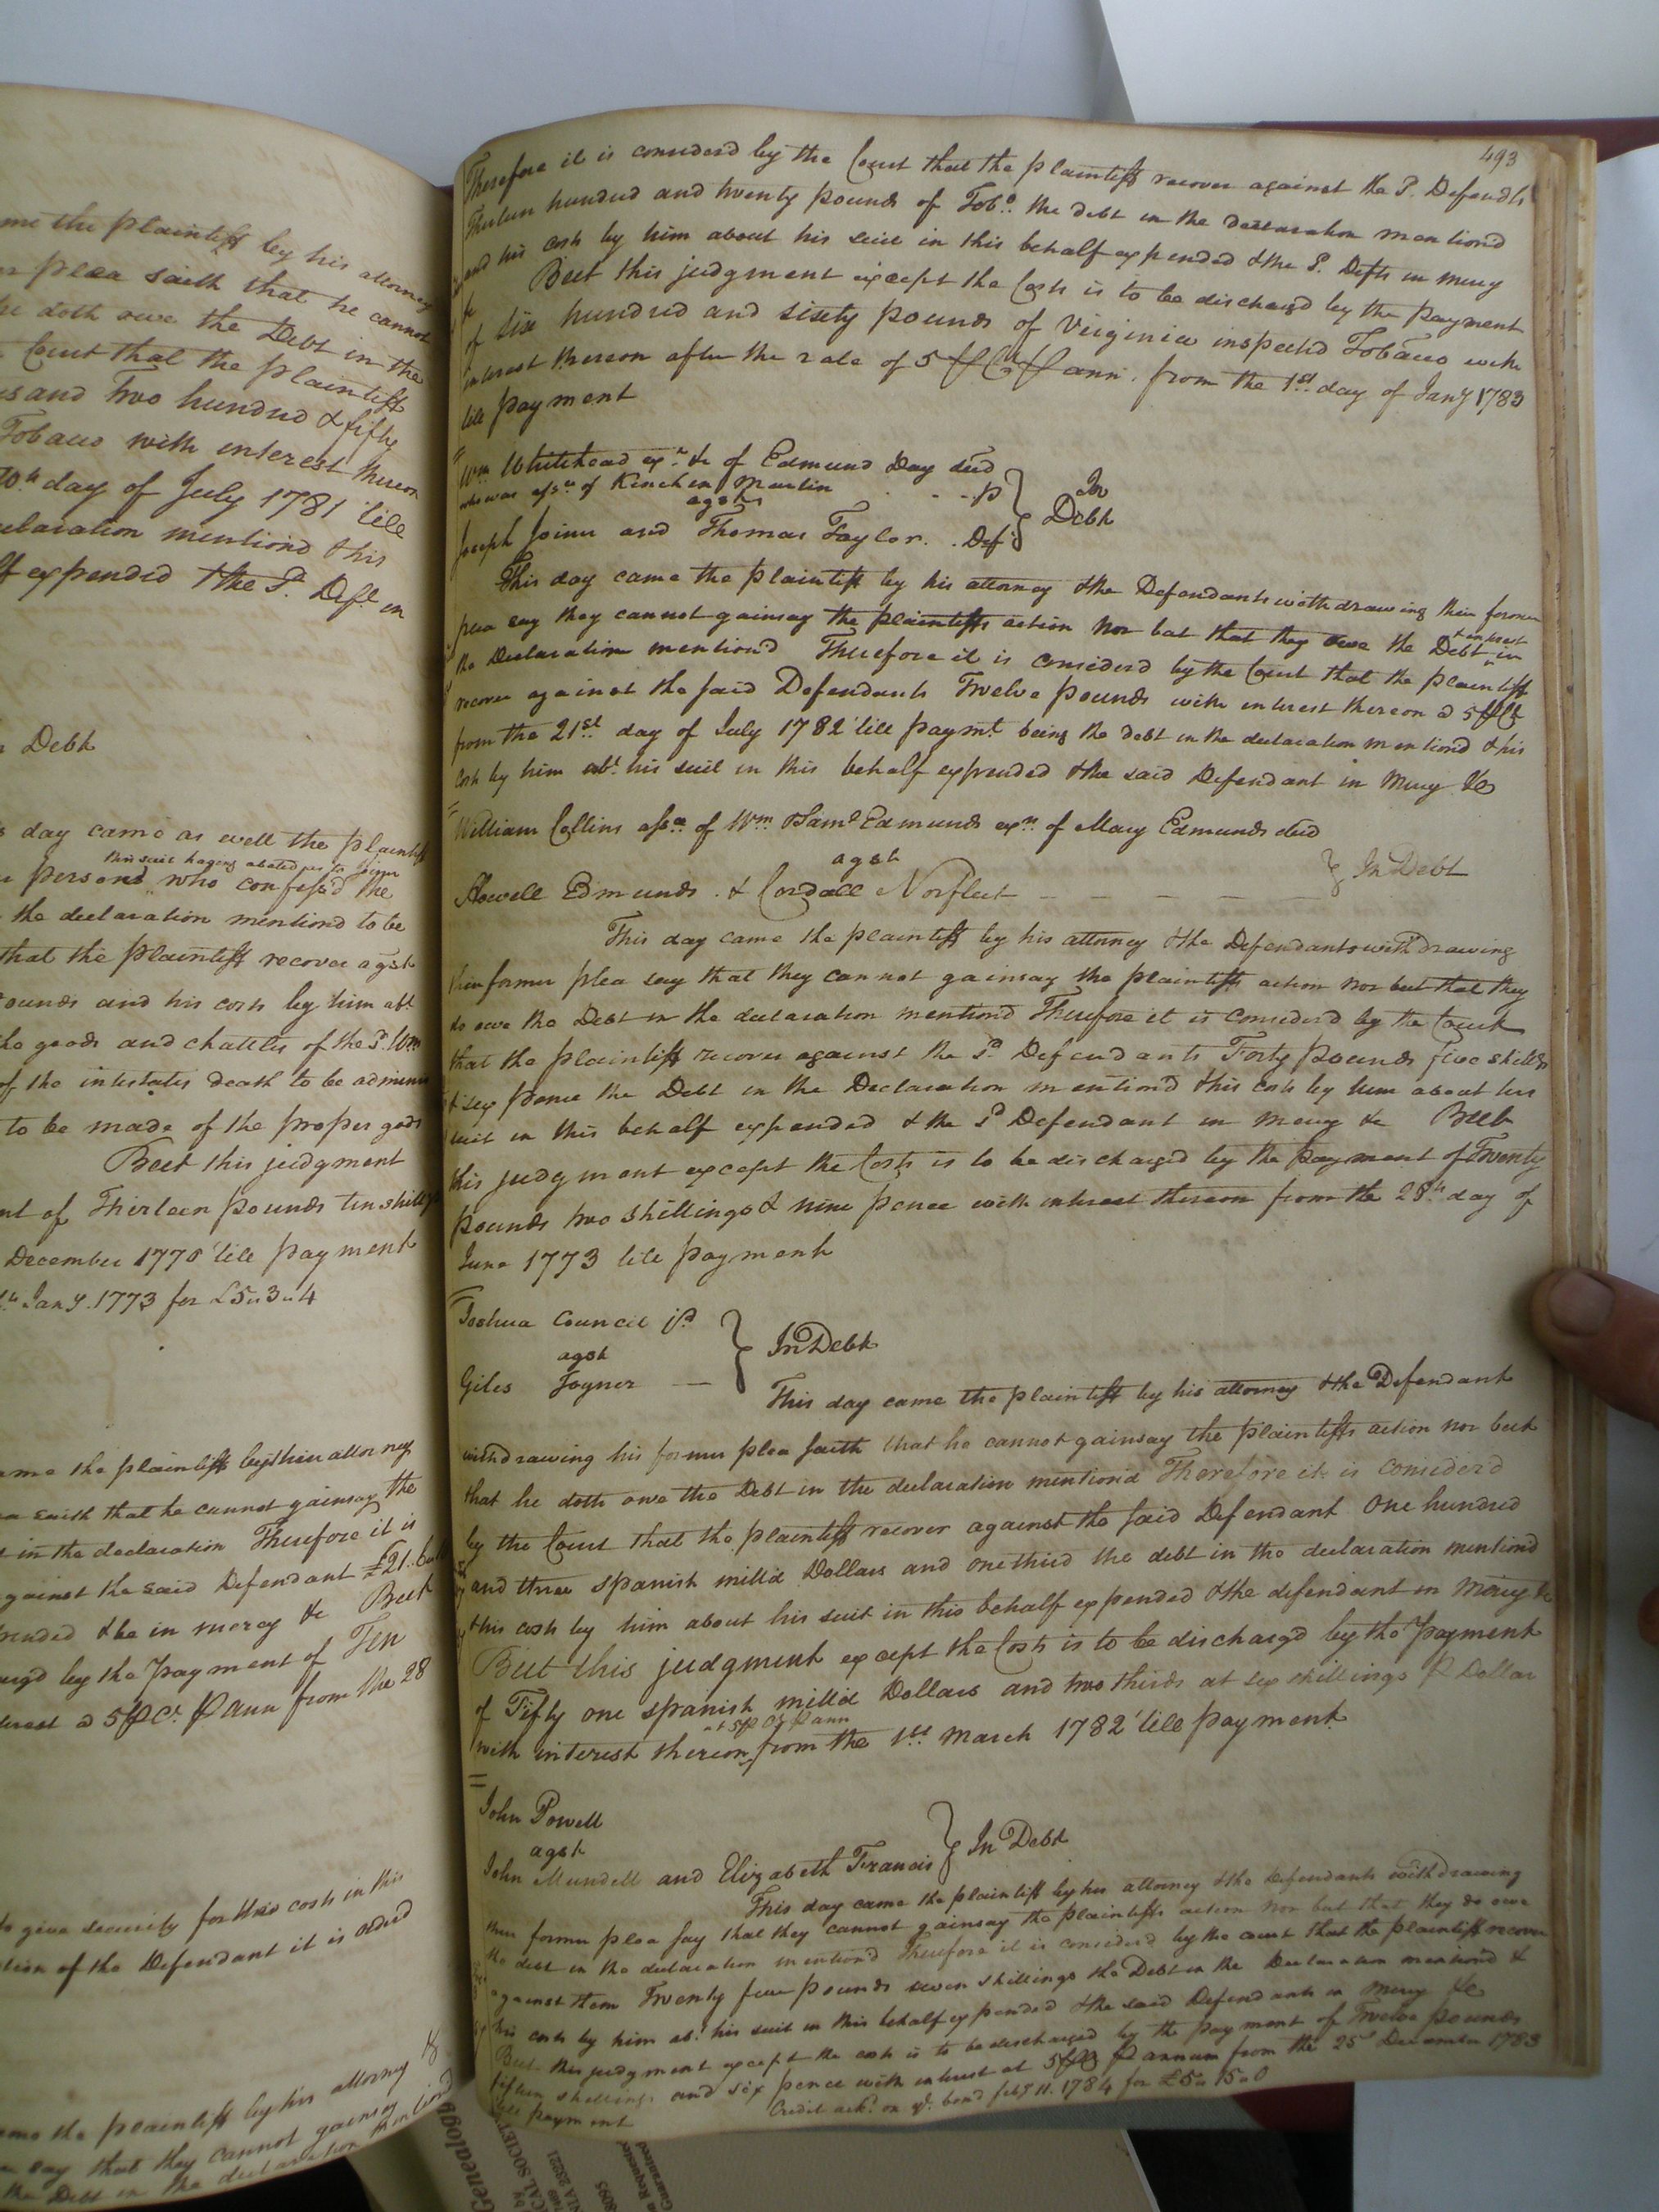 me the plaintiff by his attorney
plea saith that he cannot
doth owe the Debt in the
Court that the plaintiff
and two hundred & fifty
Tobacco with interest thereon
day of July 1781 'till
declaration mentiond & his
expended & the Sd. Deft. in
Debt
day came as well the plaintiff
this suit having abated as to Joiner
persons who confess'd the
the declaration mentiond to be
that the plaintiff recover agst
pounds and his costs by him abt.
the goods and chattles of the Sd. Wm
of the intestates death to be admin
to be made of the proper goods
But this judgment
of Thirteen pounds ten shillgs
December 1770 'till payment
Jany. 1773 for £5"3"4
the plaintiff by their attorney
saith that he cannot gainsay the
in the declaration Therefore it is
against the said Defendant £21.
& he in mercy &c But
by the payment of Ten
a 5 P Ct. P ann from the 28
to give security for their costs in this
of the Defendant it is ordered
the plaintiff by his attorney &
say that they cannot gainsay
the Debt in the declaration mentiond
493
Therefore it is considerd by the Court that the plaintiff recover against the Sd. Defendts
Thirteen hundred and twenty pounds of Tobo. the debt in the declaration mentiond
and his costs by him about his suit in this behalf expended & the Sd. Defts in mercy
&c But this judgment except the Costs is to be dischargd by the payment
of Six hundred and sixty pounds of Virginia inspected Tobacco with
interest thereon after the rate of 5 P Ct P ann. from the 1st. day of Jany 1783
till payment
Wm Whitehead exr. &c of Edmund Day decd
who was assee of Kinchen Martin p
agst
Joseph Joiner and Thomas Taylor. Defs
In
Debt
This day came the plaintiff by his attorney & the Defendants withdrawing their former
plea say they cannot gainsay the plaintiffs action nor but that they owe the Debt & interest in
the Declaration mention'd Therefore it is considerd by the Court that the plaintiff
recover against the said Defendants Twelve pounds with interest thereon a 5 P Ct
from the 21st. day of July 1782 'till paymt. being the debt in the declaration mentiond & his
costs by him abt. his suit in this behalf expended & the said Defendant in Mercy &c
William Collins assee of Wm & Saml Edmunds exrs of Mary Edmunds decd
agst
Howell Edmunds & Cordall Norfleet
In Debt
This day came the plaintiff by his attorney & the Defendants withdrawing
their former plea say that they cannot gainsay the plaintiffs action nor but that they
do owe the Debt in the declaration mentiond Therefore it is considerd by the Court
that the plaintiff recover against the Sd Defendants Forty pounds five shillgs
& six pence the Debt in the Declaration mention'd & his costs by him about his
suit in this behalf expended & the Sd Defendant in mercy &c But
this judgment except the Costs is to be discharged by the payment of Twenty
pounds two shillings & nine pence with interest thereon from the 28th. day of
June 1773 till payment
Joshua Council p
agst
Giles Joyner
In Debt
This day came the plaintiff by his attorney & the Defendant
withdrawing his former plea saith that he cannot gainsay the plaintiffs action nor but
that he doth owe the Debt in the declaration mention'd Therefore it is considerd
by the Court that the plaintiff recover against the said Defendant One hundred
and three spanish mill'd Dollars and one third the debt in the declaration mentiond
& his costs by him about his suit in this behalf expended & the defendant in Mercy &c
But this judgment except the Costs is to be dischargd by the payment
of Fifty one spanish mill'd Dollars and two thirds at six shillings P Dollar
at 5 P Ct P ann
with interest thereon from the 1st. March 1782 'till payment
John Powell
agst
John Mundell and Elizabeth Francis
In Debt
This day came the plaintiff by his attorney & the Defendants withdrawing
their former plea say that they cannot gainsay the plaintiffs action nor but that they do owe
the debt in the declaration mention'd Therefore it is considerd by the court that the plaintiff recover
against them Twenty five pounds seven shillings the Debt in the Declaration mentiond &
his costs by him abt. his suit in this behalf expended & the said Defendants in Mercy &c
But this judgment except the costs is to be discharged by the payment of Twelve pounds
fifteen shillings and six pence with interest at 5 P Ct P annum from the 25 December 1783
till payment
Credit ackd. on ye. bond feby 11. 1784 for £5"15"0
Genealog
by
CAL SOCIETY
NIA 23221
8095
Requested
Guaranteed